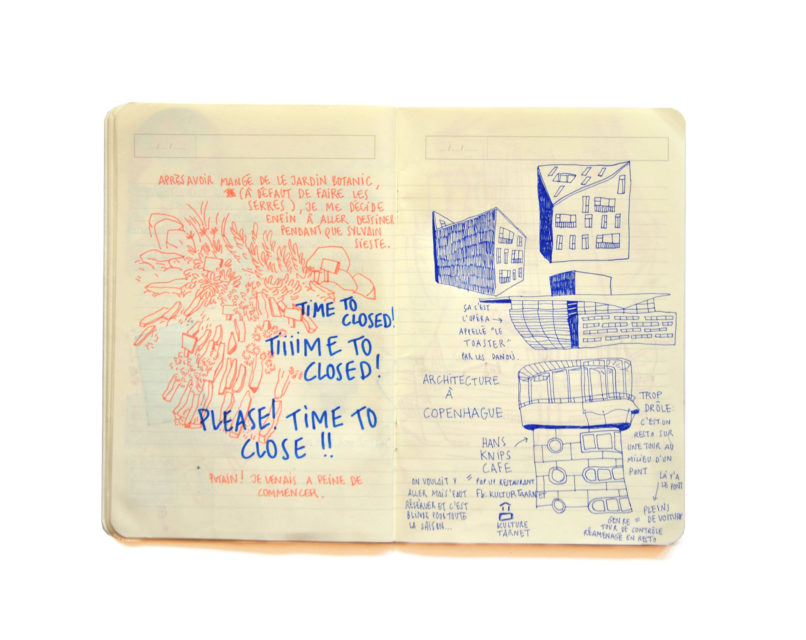 APRÈS AVOIR MANGÉ DE LE JARDIN BOTANIC,
(À DÉFAUT DE FAIRE LES
SERRES), JE ME DÉCIDE
ENFIN À ALLER DESSINER
PENDANT QUE SYLVAIN
SIESTE.
TIME TO
CLOSED!
TIIIIME TO
CLOSED!
PLEASE! TIME TO
CLOSE !!
PUTAIN! JE VENAIS A PEINE DE
COMMENCER.
ÇA C'EST
L'OPÉRA →
APPELLÉ "LE
TOASTER"
PAR LES DANOIS.
ARCHITECTURE
À
COPENHAGUE
HANS
KNIPS
CAFE
TROP
DRÔLE:
C'EST UN
RESTO SUR
UNE TOUR AU
MILIEU D'UN
PONT
LÀ Y'A
LE PONT
PLEINS
DE VOITURE
ON VOULAIT Y
ALLER MAIS FAUT
RÉSERVER ET C'EST
BLINDÉ POUR TOUTE
LA SAISON...
= POP UP RESTAURANT
Fb. KULTURTAARNET
KULTURE
TARNET
GENRE =
TOUR DE CONTRÔLE
RÉAMENAGÉ EN RESTO